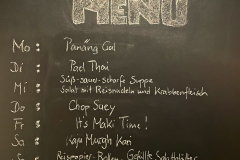 MENÜ
Mo : Panäng Gai
Di : Pad Thai
Mi : Süß-sauer-scharfe Suppe
Salat mit Reisnudeln und Krabbenfleisch
Do : Chop Suey
Fr : It's Maki Time!
Sa : Kaju Murgh Kari
Reispapier-Rollen